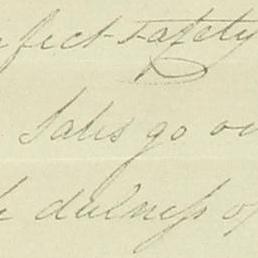 rfect safety
Sales go on
dulness of